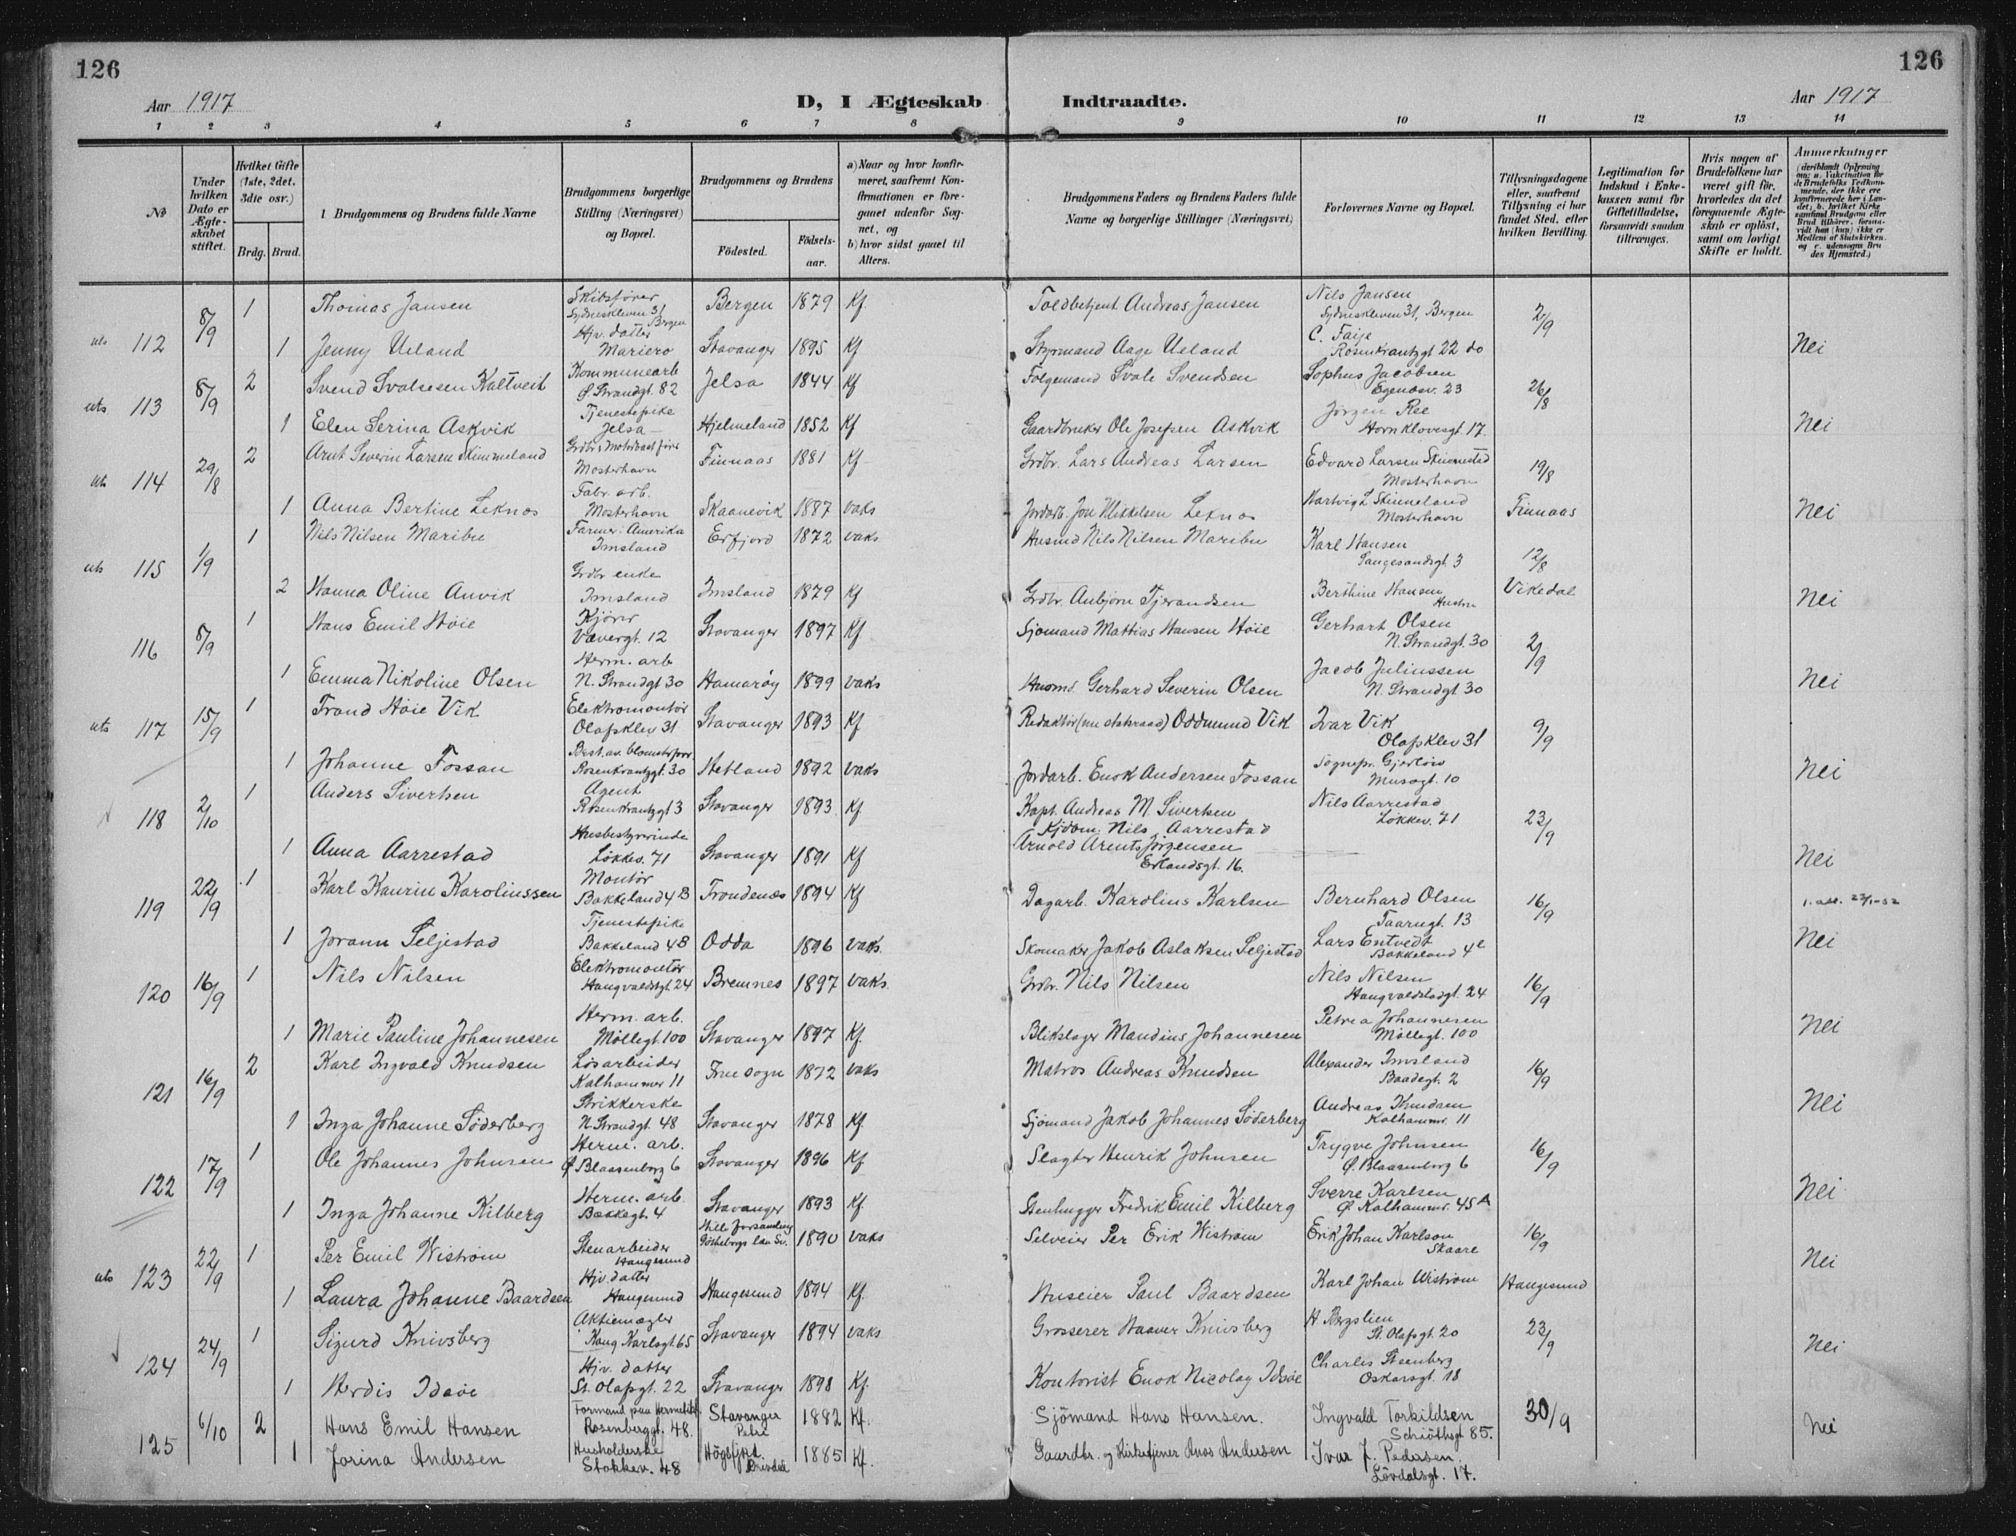 126
126
Aar 1917
D, I Ægteskab
Indtraadte.
Aar 1917
1 2 3 4 5 6 7 8 9 10 11 12 13 14
No
Under hvilken Dato er Ægteskabet stiftet.
Hvilket Gifte (1ste, 2det, 3die osv.)
Brdg. Brud.
1 Brudgommens og Brudens fulde Navne
Brudgommens borgerlige Stilling (Næringsvei) og Bopæl.
Brudgommens og Brudens
Fødested.
Fødselsaar.
a) Naar og hvor konfirmeret, saafremt Konfirmationen er foregaaet udenfor Sognet, og
b) hvor sidst gaaet til Alters.
Brudgommens Faders og Brudens Faders fulde Navne og borgerlige Stillinger (Næringsvei)
Forlovernes Navne og Bopæl.
Tillysningsdagene eller, saafremt Tillysning ei har fundet Sted, efter hvilken Bevilling.
Legitimation for Indskud i Enkekassen samt for Giftetilladelse, forsaavidt saadan tiltrænges.
Hvis nogen af Brudefolkene har været gift før, hvorledes da det foregaaende Ægteskab er opløst, samt om lovligt Skifte er holdt.
Anmerkninger
112 8/9 1 Thomas Jansen Skibsfører Sydneskleven 31 Bergen Bergen 1879 Kf. Toldbetjent Andreas Jansen Nils Jansen Sydneskleven 31, Bergen 2/9
1 Jenny Ueland Hjv. datter Mariero Stavanger 1895 Kf Styrmand Aage Ueland C. Faije Rosenkrantzgt 22 do Nei
113 8/9 2 Svend Svalesen Kaltveit Kommunearb Ø Strandgt. 82 Jelsa 1844 Kf Folgemand Svale Svendsen Sophus Jacobsen Egenæsv. 23 26/8
1 Elen Serina Askvik Tjenestepike Jelsa Hjelmeland 1852 Kf Gaardbruker Ole Josefsen Askvik Jörgen Ree Hornklovesgt 17. Nei
114 29/8 2 Arnt Severin Larsen Skimmeland Mosterhavn Finnaas 1881 Kf Grdbr. Lars Andreas Larsen Edvard Larsen Mosterhavn 19/8
1 Anna Bertine Leknes Fabr. arb. Mosterhavn Skaanevik 1887 vaks Jordarb. Jon Mikkelsen Leknes Hartvig L Mosterhavn Finnaas Nei
115 1/9 1 Nils Nilsen Maribu Farmer i Amerika Imsland Erfjord 1872 vaks Husmd Nils Nilsen Maribu Karl Hansen Langesandsgt 3 12/8
2 Hanna Oline Anvik Grdbr enke Imsland Imsland 1879 Kf Grdbr. Anbjørn Tjerandsen Berthine Hansen Hustru Vikedal Nei
116 8/9 1 Hans Emil Höie Kjører Vævergt. 12 Stavanger 1897 Kf. Sjømand Mattias Hansen Höie Gerhart Olsen N. Strandgt. 30 2/9
1 Emma Nikoline Olsen Herm. arb N. Strandgt 30 Hamarøy 1899 vaks Husmd. Gerhard Severin Olsen Jacob Juliussen N. Strandgt 30 Nei
117 15/9 1 Trond Höie Vik Elektromontør Olafsklev 31 Stavanger 1893 Kf Redaktør (nu statsraad) Oddmund Vik Ivar Vik Olafsklev 31 9/9
1 Johanne Fossan Best. av blomsterforr Rosenkrantzgt. 30 Hetland 1892 vaks Jordarb. Enok Andersen Fossan Sognepr. Gjerløw Musegt. 10 Nei
118 2/10 1 Anders Sivertsen Agent Rosenkrantzgt 3 Stavanger 1893 Kf. Kapt. Andreas M. Sivertsen Nils Aarrestad Løkkev. 71 23/9
1 Anna Aarrestad Husbestyrerinde Løkkev. 71 Stavanger 1891 Kf Kjøbm. Nils Aarrestad Arnold Arentz Jørgensen Erlandsgt. 16. Nei
119 22/9 1 Karl Kaurin Karolinssen Montør Bakkeland 4B Trondenæs 1894 Kf Dagarb. Karolius Karlsen Bernhard Olsen Taarngt. 13 16/9
1 Jorann Seljestad Tjenestepike Bakkeland 4B Odda 1896 vaks. Skomaker Jakob Aslaksen Seljestad Lars Entvedt Bakkeland 4 Nei
120 16/9 1 Nils Nilsen Elektromontør Haugvaldstgt. 24 Bremnes 1897 vaks. Grdbr. Nils Nilsen Nils Nilsen Haugvaldstadgt. 24 16/9
1 Marie Pauline Johannesen Herm. arb. Møllegt. 100 Stavanger 1897 Kf. Blikslager Mandius Johannesen Petrea Johannesen Møllegt. 100 Nei
121 16/9 2 Karl Ingvald Knudsen Løsarbeider Kalhammer 11 Frue sogn 1872 vaks Matros Andreas Knudsen Alexander Imsland Baadegt. 2 16/9
1 Inga Johanne Söderberg Strikkerske N. Strandgt. 48 Stavanger 1878 Kf. Sjømand Jakob Johannes Söderberg Andreas Knudsen Kalhammr. 11 Nei
122 17/9 1 Ole Johannes Johnsen Herm. arb. Ø Blaasenborg 6 Stavanger 1896 Kf Slagter Henrik Johnsen Trygve Johnsen Ø. Blaasenborg 6 16/9
1 Inga Johanne Kilberg Herm. arb. Bakkegt. 4 Stavanger 1893 Kf. Stenhugger Fredrik Emil Kilberg Sverre Karlsen Ø Kalhammr. 45A Nei
123 22/9 1 Per Emil Wistrøm Stenarbeider Haugesund 1890 vaks Selveier Per Erik Wistrøm Erik Johan Karlson Skaare 16/9
1 Laura Johanne Baardsen Hjv. datter Haugesund Haugesund 1894 Kf. Huseier Paul Baardsen Karl Johan Wistrøm Haugesund Nei
124 24/9 1 Sigurd Knivsberg Aktiemægler Kong Karlsgt. 65 Stavanger 1894 vaks Grosserer Haaver Knivsberg H Bergslien St. Olafsgt. 20 23/9
1 Herdis Idsöe Hjv. datter St. Olafsgt. 22 Stavanger 1898 Kf. Kontorist Enok Nicolay Idsöe Charles Steenberg Oskarsgt. 18 Nei
125 6/10 2 Hans Emil Hansen Formand paa Hermetikf. Rosenberggt. 48. Stavanger Petri 1882 Kf. Sjömand Hans Hansen. Ingvald Torkildsen Schiöthsgt 85. 30/9
1 Jorina Andersen Husholderske Stokkev. 48 Högsfjord 1885 Kf. Gaardbr. og Kirketjener Anos Andersen Ivar J. Pedersen Lövdalsgt. 17. Nei